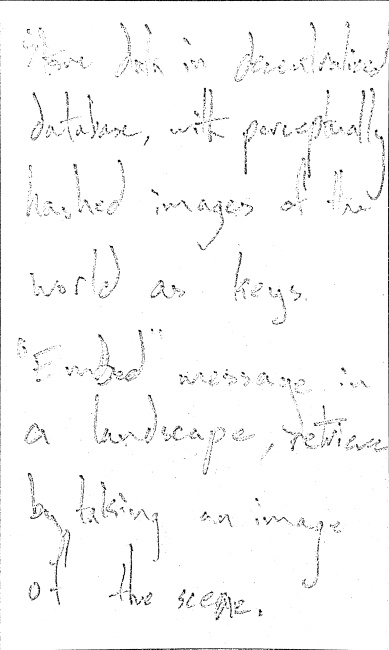 Store data in decentralised
database, with perceptually
hashed images of the
world as keys.
"Embed" message in
a landscape, retrieve
by taking an image
of the scene.